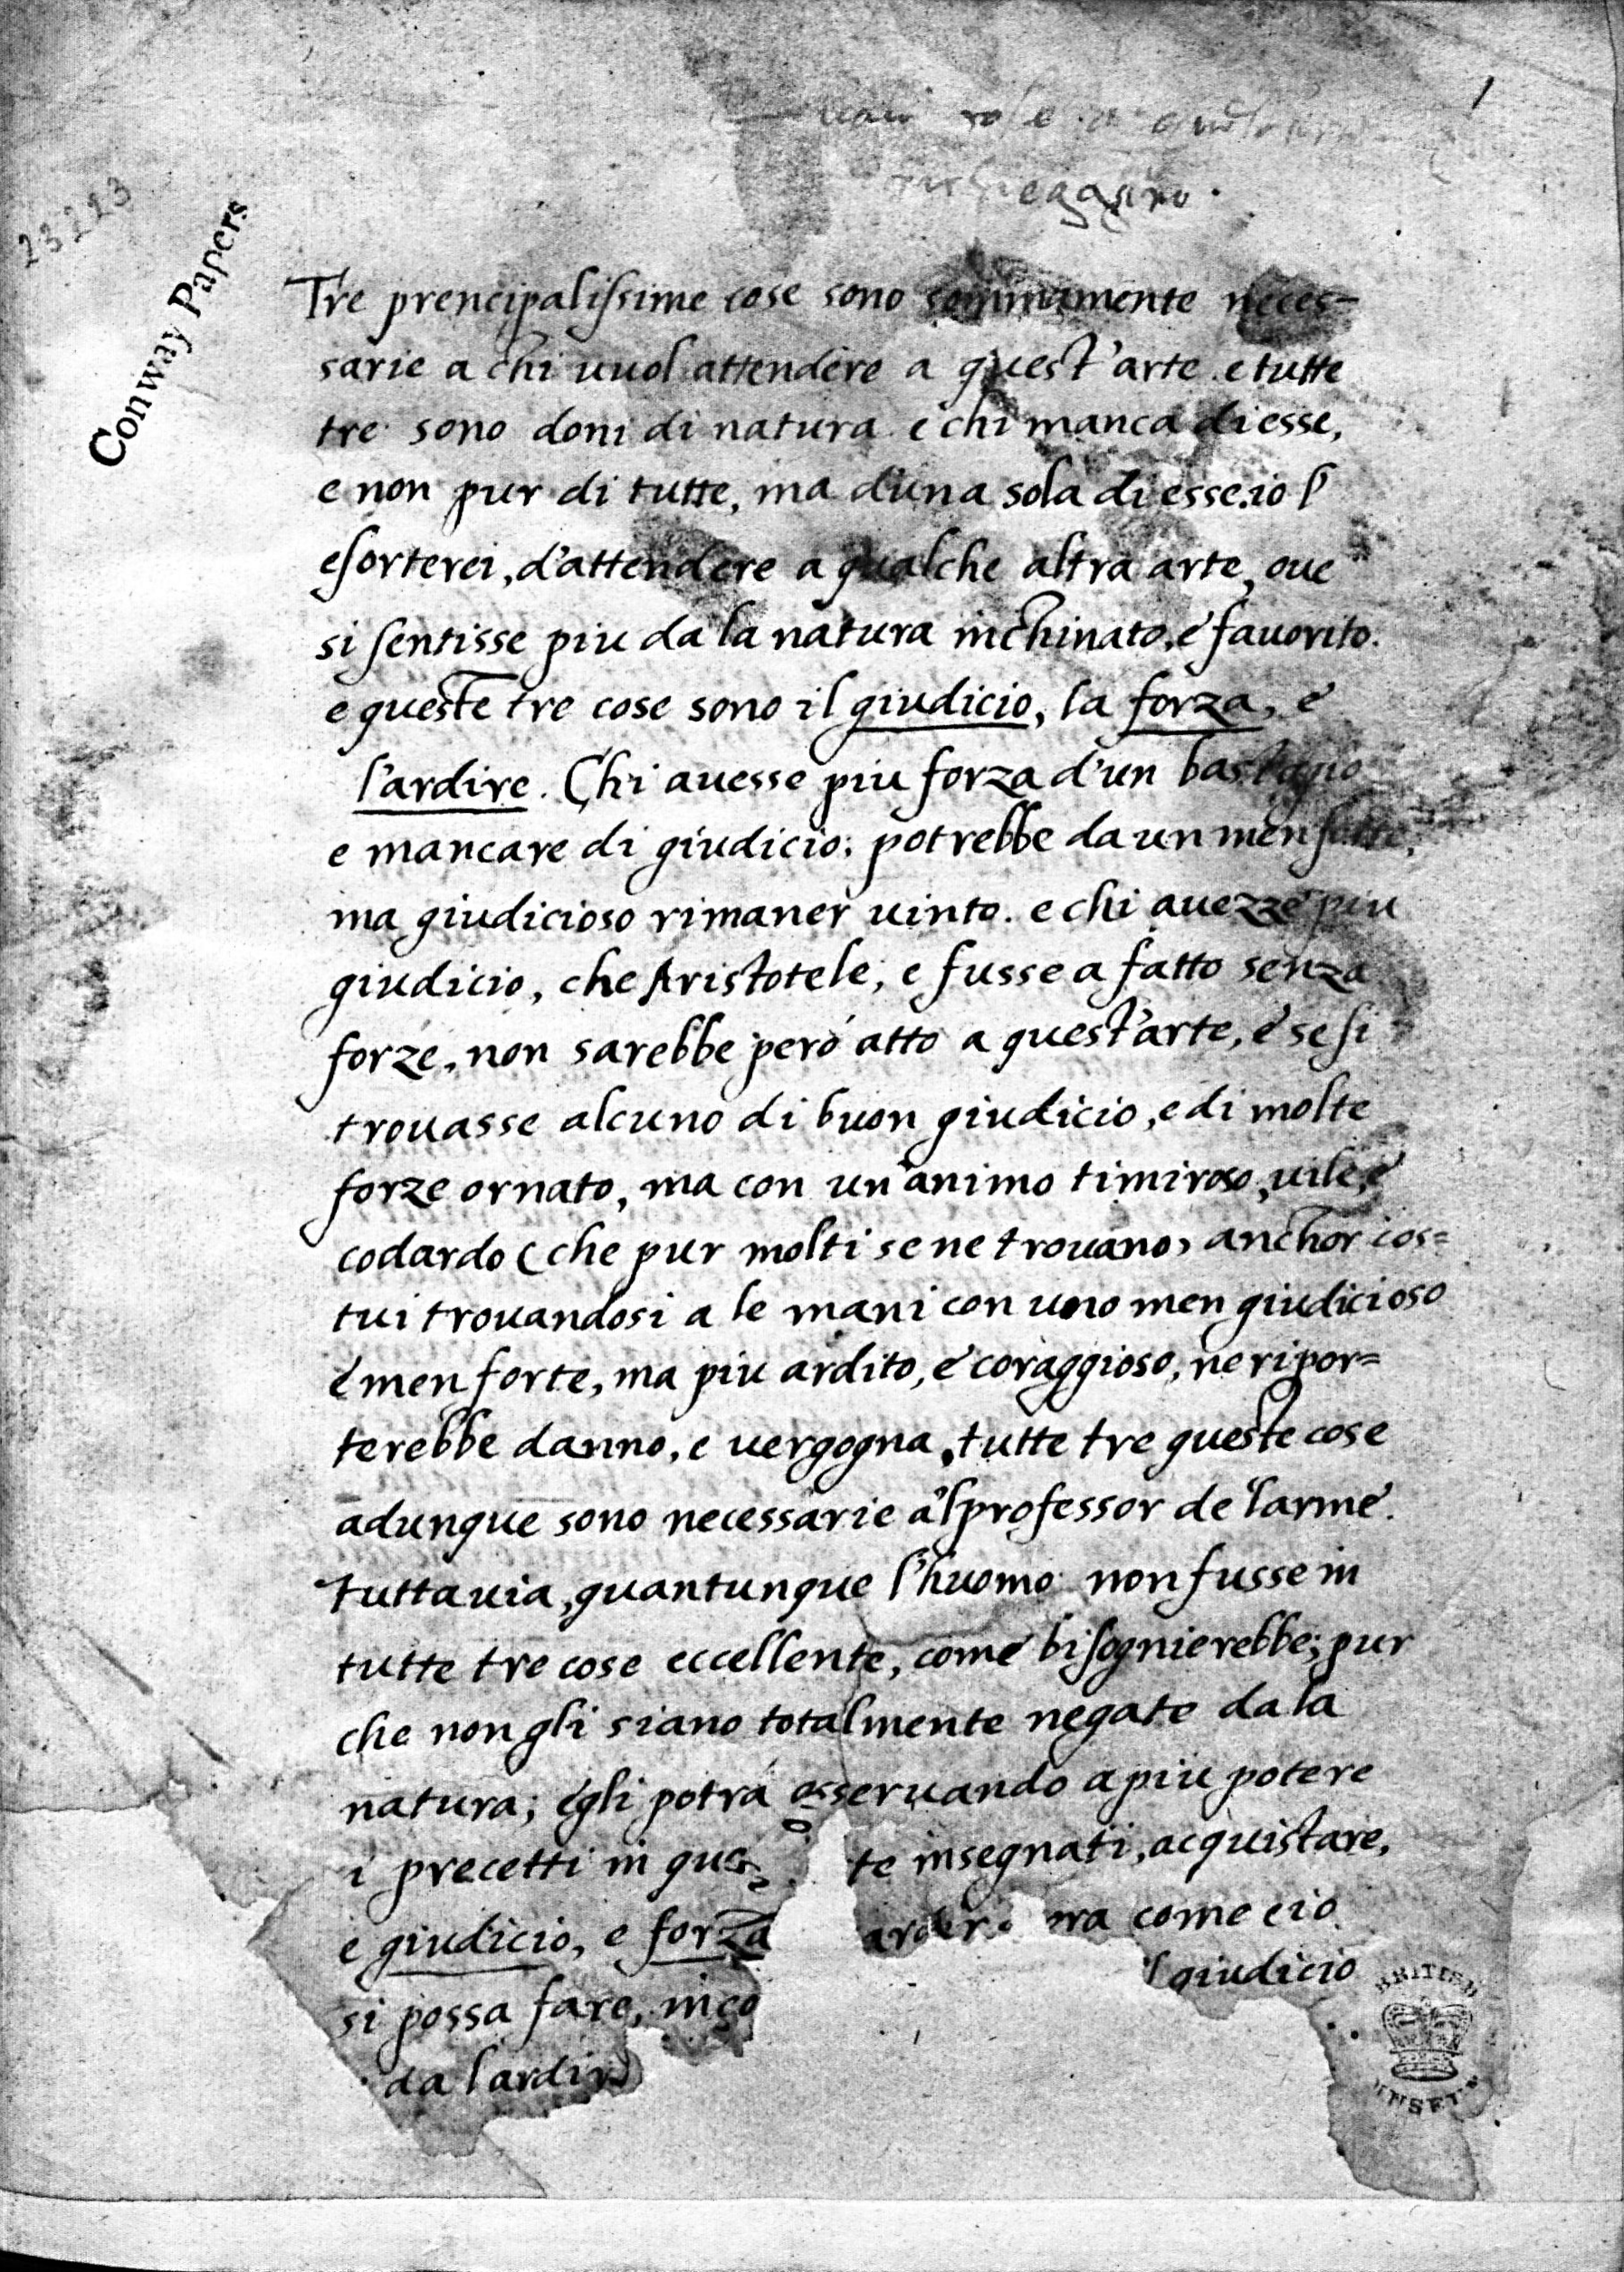 1
23223
Conway Papers
Tre prencipalissime cose sono sommamente neces-
sarie a chi vuol attendere a quest'arte e tutte
tre sono doni di natura e chi manca di esse,
e non pur di tutte, ma d'una sola di esse. io l'
esorterei, d'attendere a qualche altra arte, oue
si sentisse piu da la natura inchinato, e fauorito.
e queste tre cose sono il giudicio, la forza, e
l'ardire. Chi auesse piu forza d'un bastagio
e mancare di giudicio; potrebbe da un men forte,
ma giudicioso rimaner uinto. e chi auezze piu
giudicio, che Aristotele; e fusse a fatto senza
forze, non sarebbe peró atto a quest'arte, e se si
trouasse alcuno di buon giudicio, e di molte
forze ornato, ma con un'animo timiroso, uile, e
codardo (che pur molti se ne trouano) anchor cos=
tui trouandosi a le mani con uno men giudicioso
e men forte, ma piu ardito, e coraggioso, ne ripor=
terebbe danno, e uergogna, tutte tre queste cose
adunque sono necessarie a'l professor de l'arme.
tuttauia, quantunque l'huomo non fusse in
tutte tre cose eccellente, come bisognierebbe; pur
che non gli siano totalmente negate da la
natura; egli potrá osseruando a piu potere
i precetti in que te insegnati, acquistare,
e giudicio, e forza ardir ora come cio
si possa fare, inco l giudicio
da l'ardir
BRITISH
MUSEUM